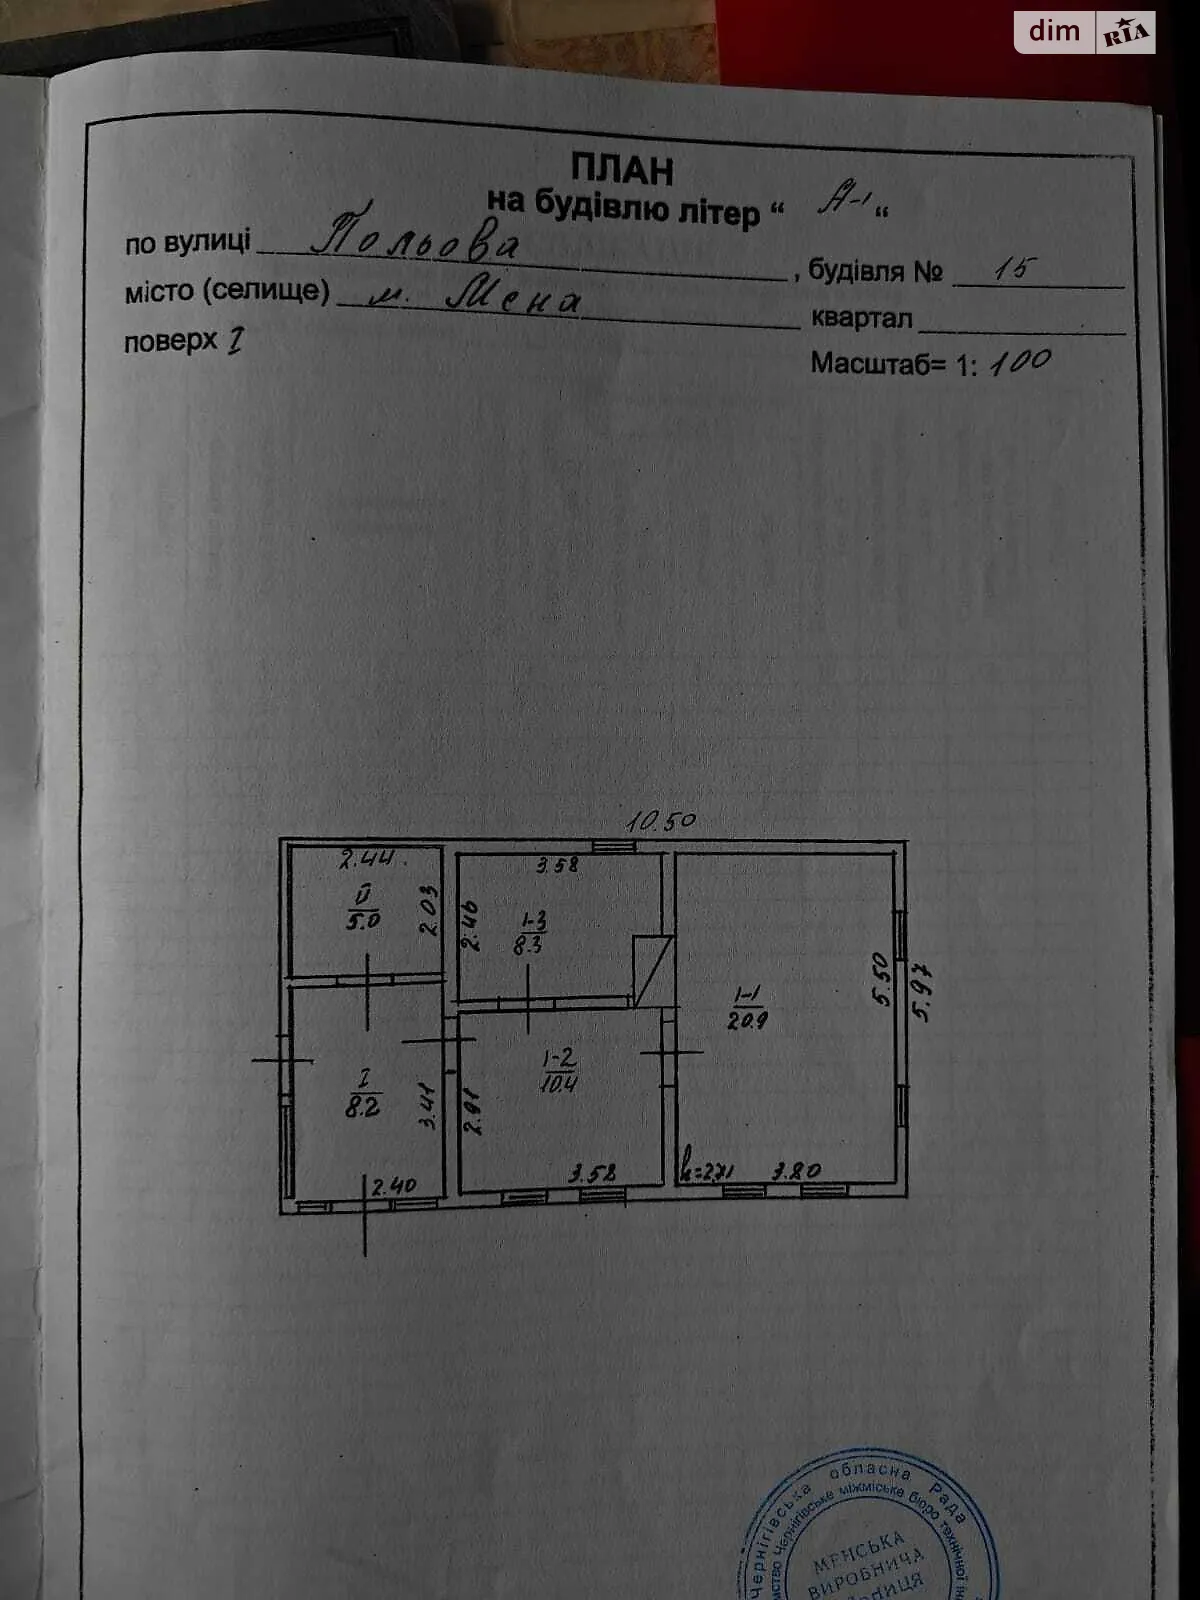 dim RIA
ПЛАН
на будівлю літер “ А-1 “
по вулиці Польова , будівля № 15
місто (селище) м. Мена
квартал
поверх I
Масштаб= 1: 100
10.50
2.44
3.58
II
5.0
2.03
2.46
1-3
8.3
5.50
5.97
1-1
20.9
I
8.2
3.41
2.91
1-2
10.4
2.40
3.58
h=2.71
3.80
Чернігівська обласна Рада
Чернігівське міжміське бюро технічної
МЕНСЬКА
ВИРОБНИЧА